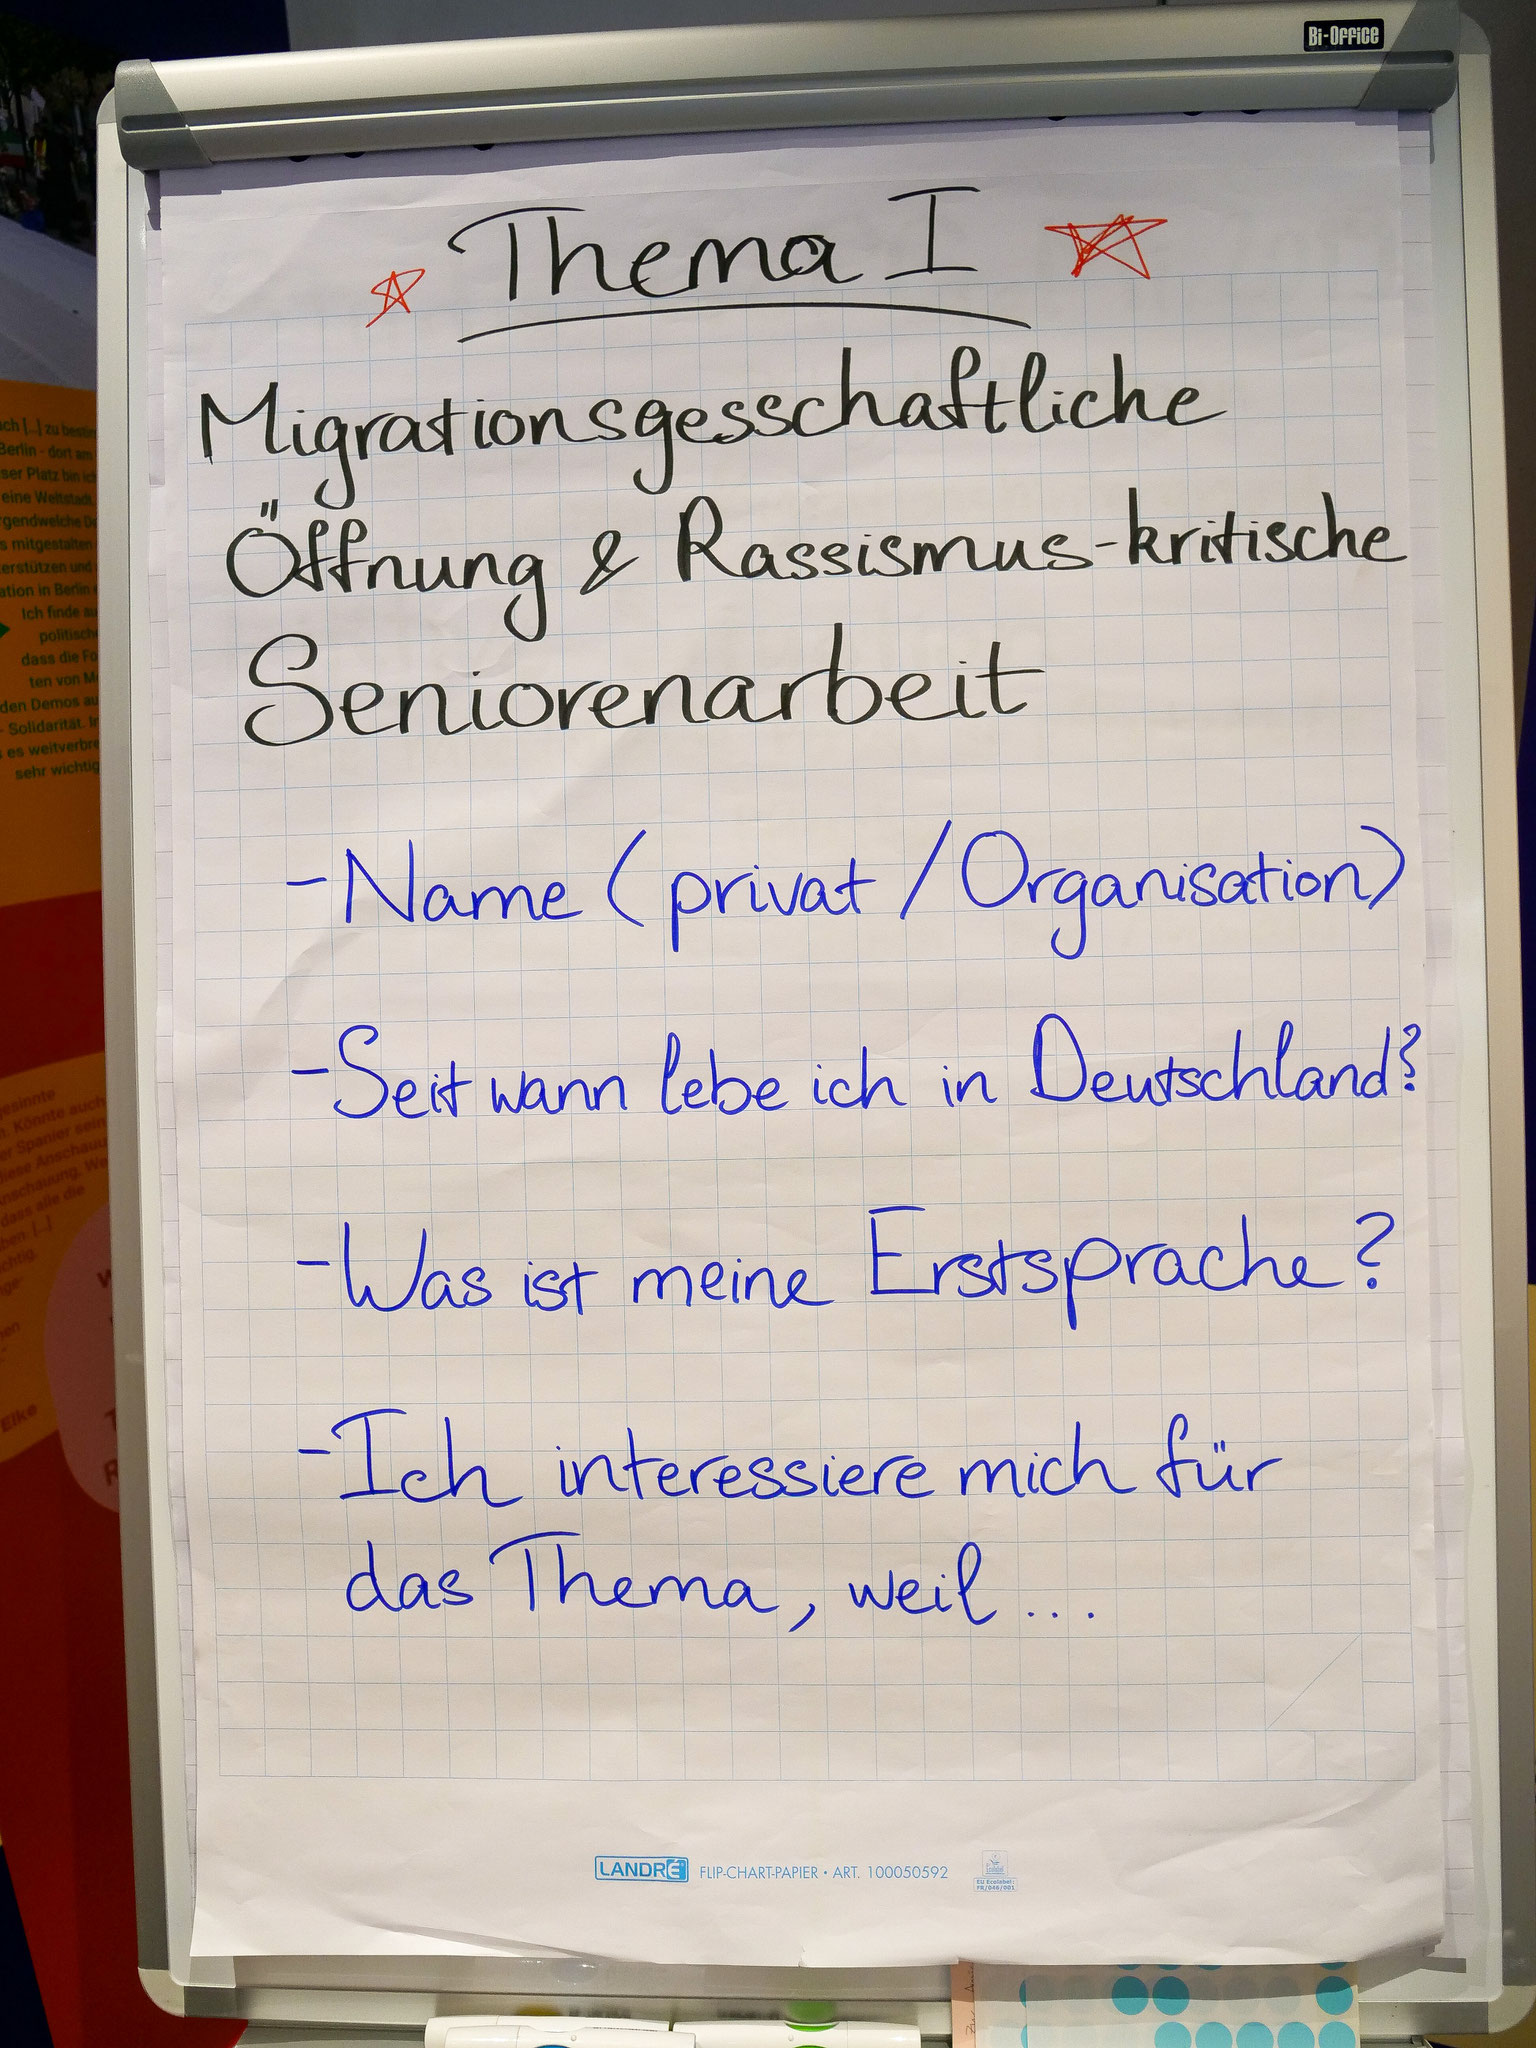 Bi-Office
Thema I
Migrationsgesschaftliche
Öffnung & Rassismus-kritische
Seniorenarbeit
- Name (privat / Organisation)
- Seit wann lebe ich in Deutschland?
- Was ist meine Erstsprache?
- Ich interessiere mich für
das Thema, weil ...
LANDRÉ FLIP-CHART-PAPIER • ART. 100050592
EU Ecolabel:
FR/046/001
ch [...] zu
Berlin - dort am
ser Platz bin ich
eine Weltstadt,
mitgestalten
erstützen und
ation in Berlin
Ich finde
dass die
ten von
den Demos
- Solidarität.
es
sehr wichtig
Könnte auch
er Spanier sein
diese
dass alle die
[...]
Elke